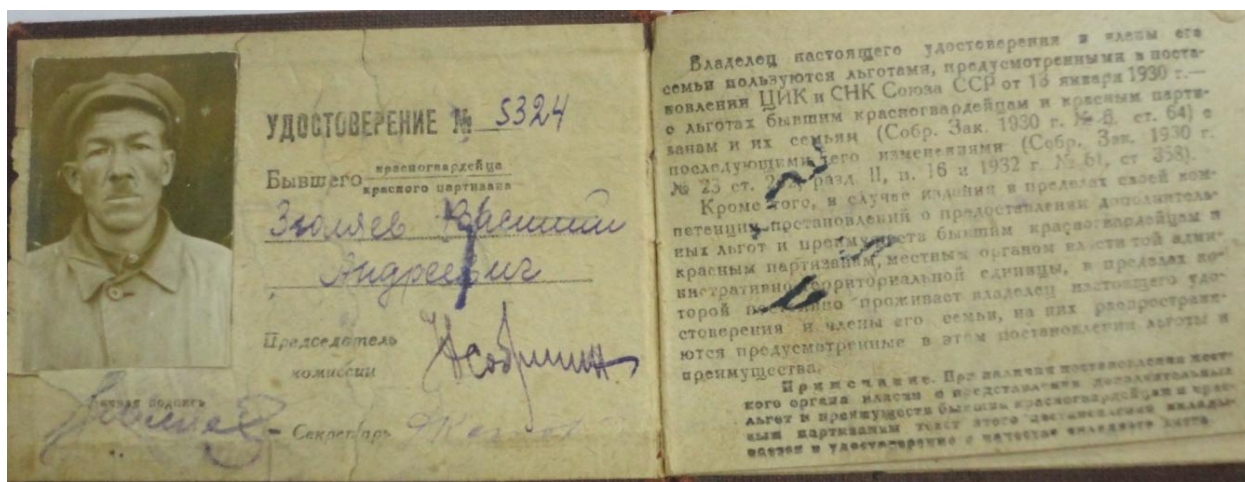 УДОСТОВЕРЕНИЕ № 5324
Бывшего красногвардейца
красного партизана
Василий
Андреевич
Председатель
комиссии
Личная подпись
Секретарь
Владелец настоящего удостоверения и члены его
семьи пользуются льготами, предусмотренными в поста-
новлении ЦИК и СНК Союза ССР от 13 января 1930 г.—
о льготах бывшим красногвардейцам и красным парти-
занам и их семьям (Собр. Зак. 1930 г. № 8. ст. 64) с
последующими его изменениями (Собр. Зак. 1930 г.
№ 23 ст. разд II, п. 16 и 1932 г. № 61, ст 358).
Кроме того, в случае издания в пределах своей ком-
петенции постановлений о предоставлении дополнитель-
ных льгот и преимуществ бывшим красногвардейцам и
красным партизанам, местным органом власти той адми-
нистративно-территориальной единицы, в пределах ко-
торой постоянно проживает владелец настоящего удо-
стоверения и члены его семьи, на них распространя-
ются предусмотренные в этом постановлении льготы и
преимущества.
Примечание. При наличии постановления мест-
ного органа власти о предоставлении дополнительных
льгот и преимуществ бывшим красногвардейцам и крас-
ным партизанам текст этого постановления
в удостоверение в качестве вкладного листа